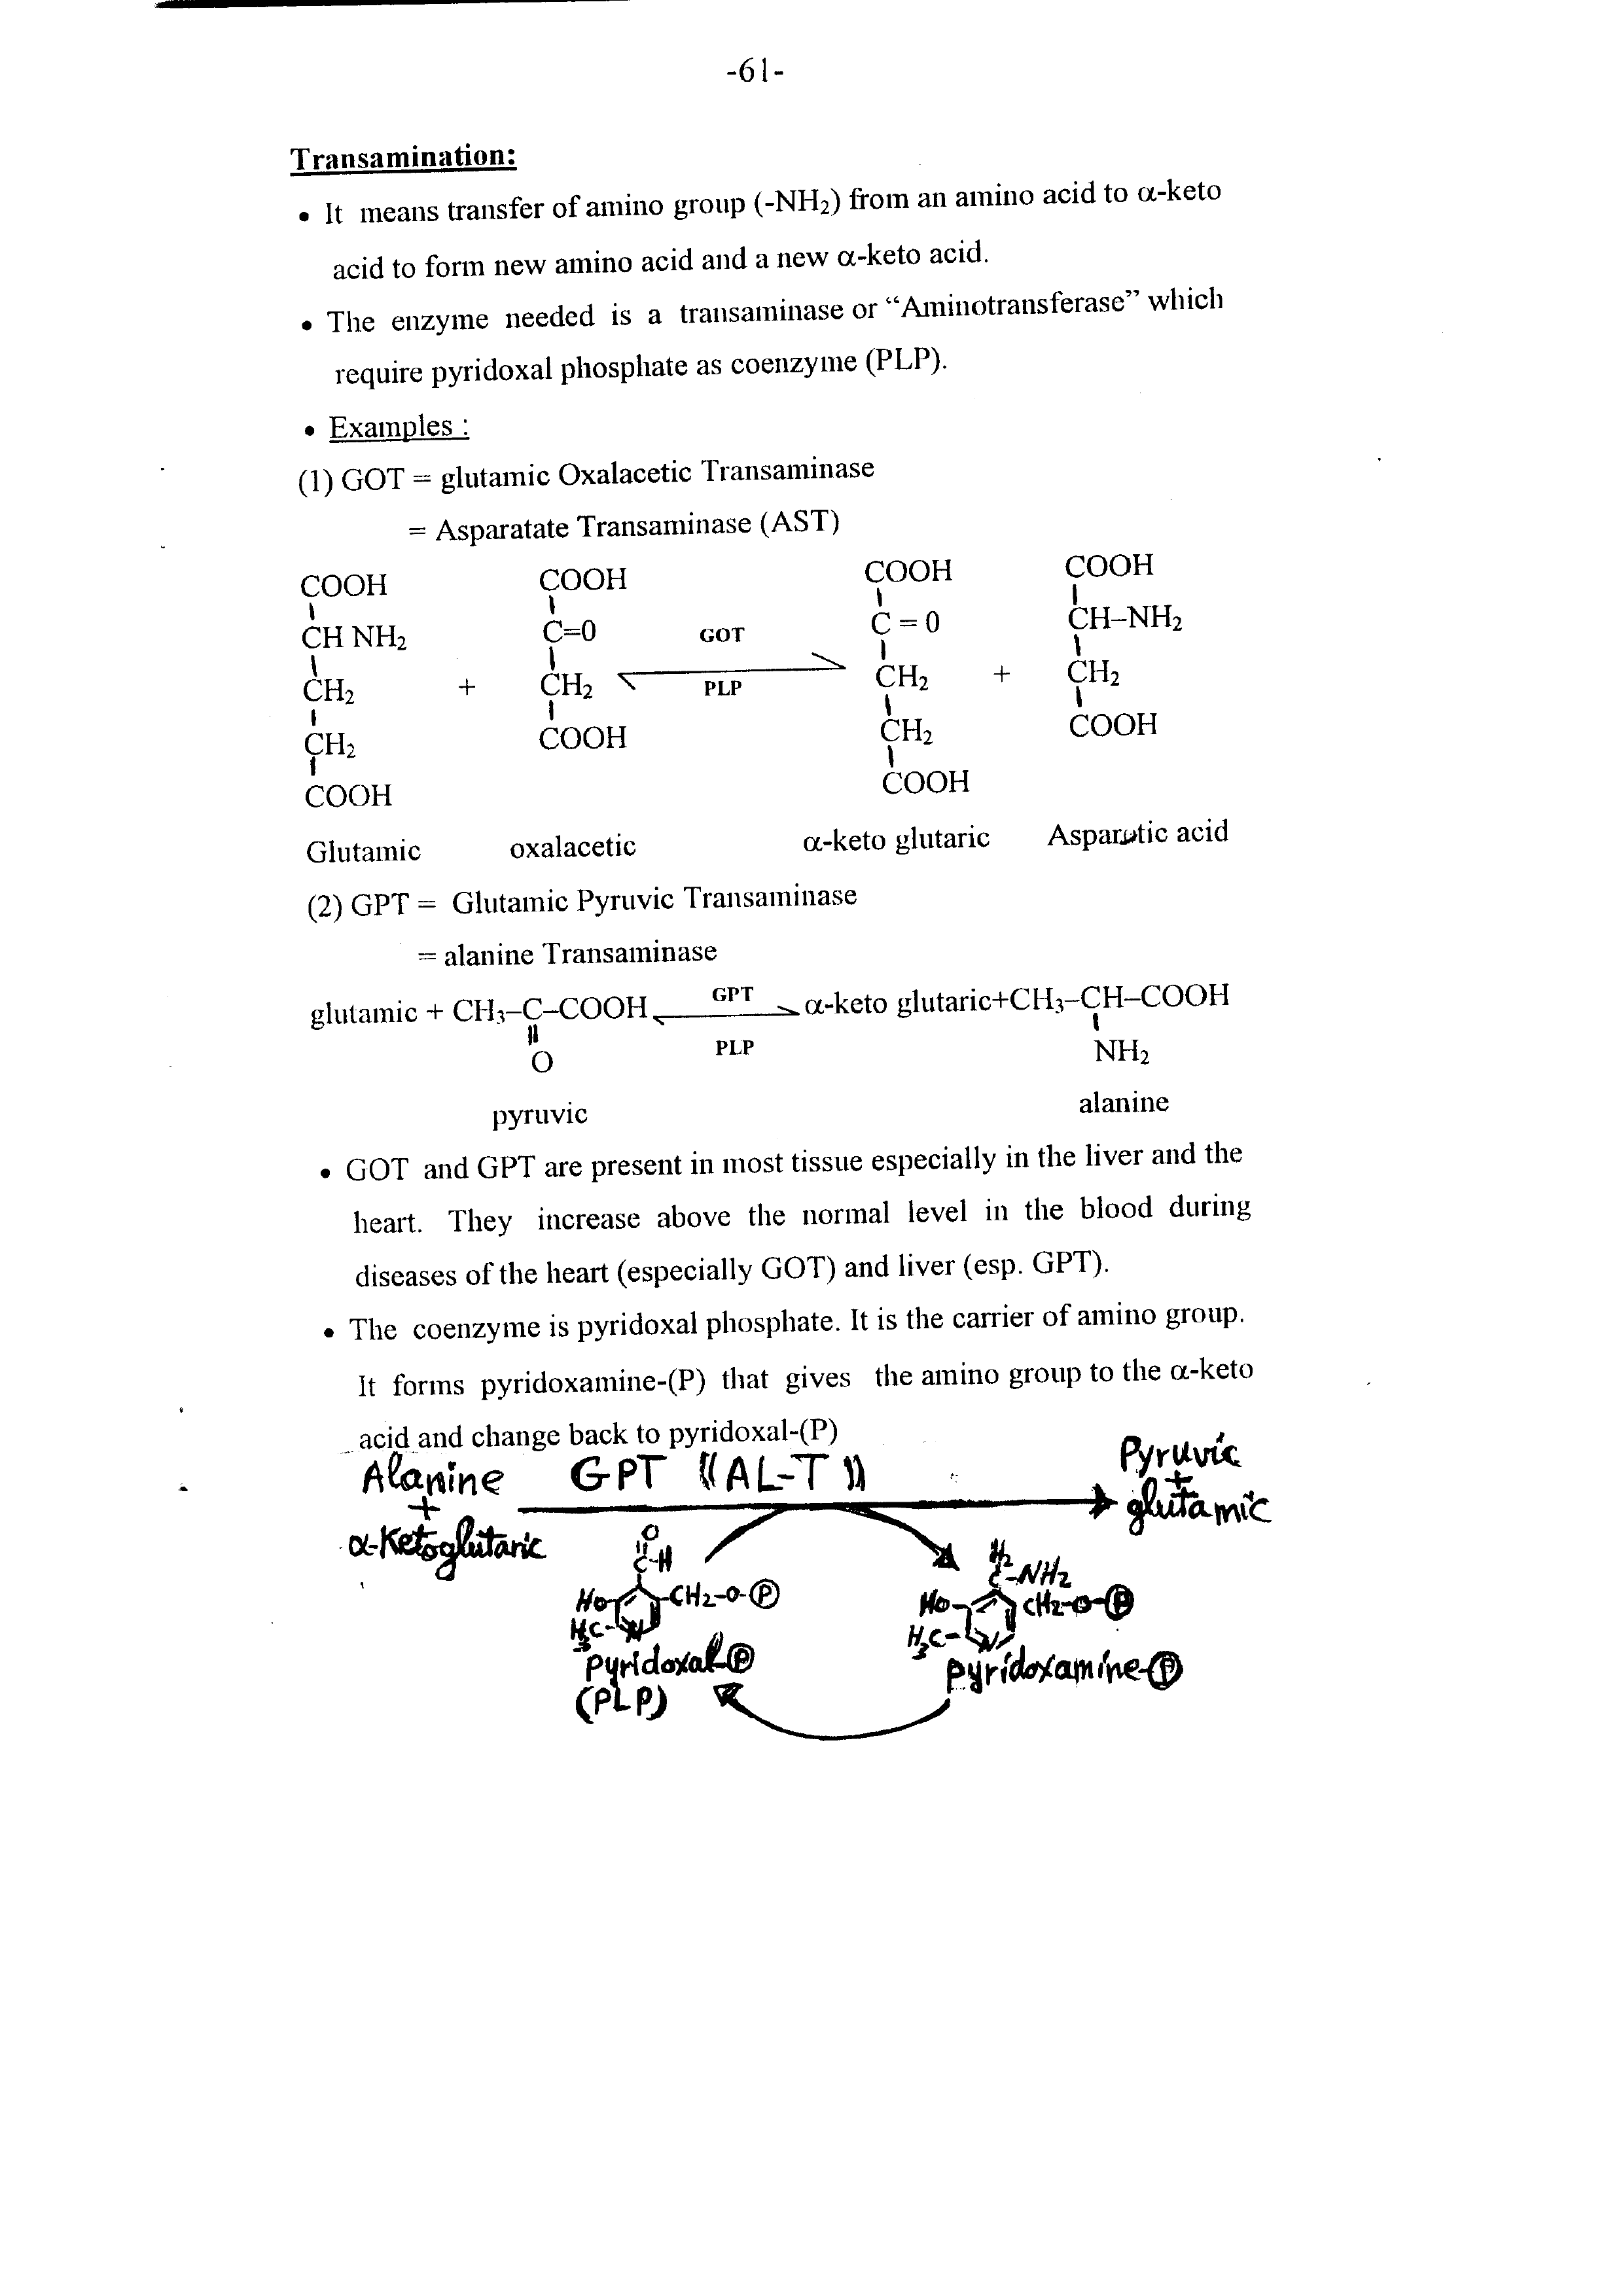 -61-
Transamination:
• It means transfer of amino group (-NH₂) from an amino acid to α-keto
acid to form new amino acid and a new α-keto acid.
• The enzyme needed is a transaminase or “Aminotransferase” which
require pyridoxal phosphate as coenzyme (PLP).
• Examples :
(1) GOT = glutamic Oxalacetic Transaminase
= Asparatate Transaminase (AST)
COOH COOH COOH COOH
CH NH₂ C=0 GOT C = 0 CH–NH₂
CH₂ + CH₂ PLP CH₂ + CH₂
CH₂ COOH CH₂ COOH
COOH COOH
Glutamic oxalacetic α-keto glutaric acid
(2) GPT = Glutamic Pyruvic Transaminase
= alanine Transaminase
glutamic + CH₃–C–COOH GPT α-keto glutaric+CH₃–CH–COOH
O PLP NH₂
pyruvic alanine
• GOT and GPT are present in most tissue especially in the liver and the
heart. They increase above the normal level in the blood during
diseases of the heart (especially GOT) and liver (esp. GPT).
• The coenzyme is pyridoxal phosphate. It is the carrier of amino group.
It forms pyridoxamine-(P) that gives the amino group to the α-keto
acid and change back to pyridoxal-(P)
Alanine GPT ((AL-T)) Pyruvic
+ +
α-Ketoglutaric glutamic
O
C-H H₂
C-NH₂
HO CH₂-O-Ⓟ HO- CH₂-O-Ⓟ
H₃C- N H₃C- N
Pyridoxal-Ⓟ pyridoxamine-Ⓟ
(PLP)